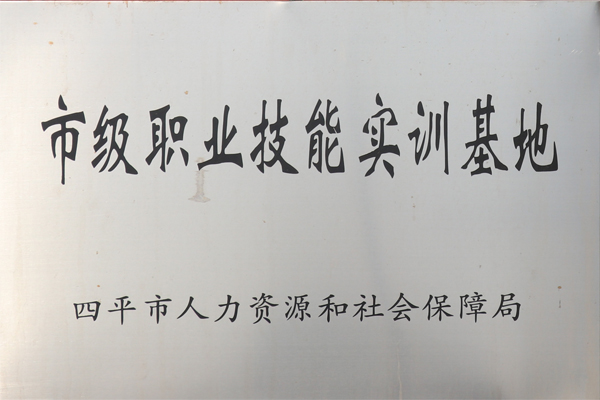 市级职业技能实训基地
四平市人力资源和社会保障局